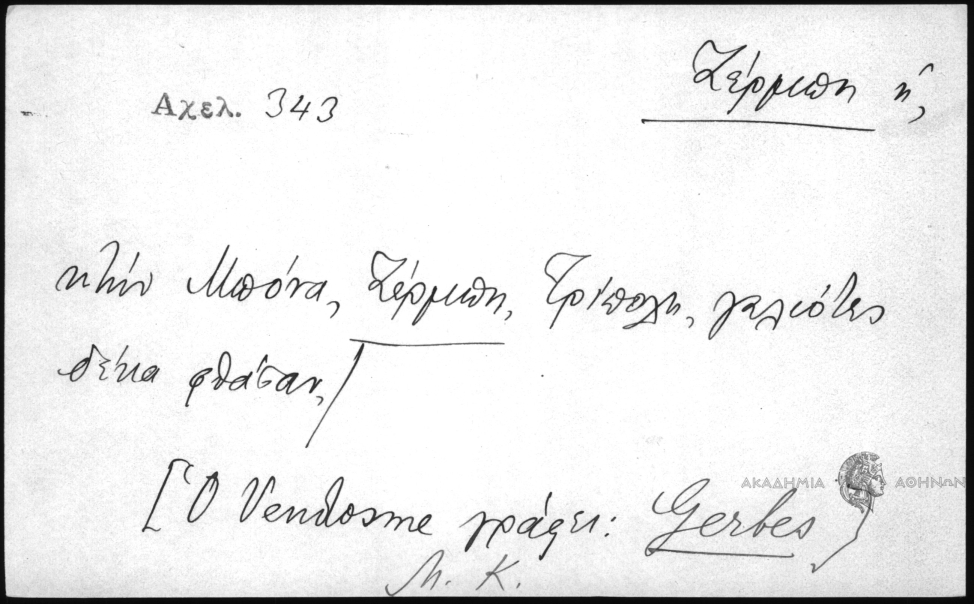 Αχελ. 343
Ζέρμπη ἡ,
κ᾽ τὴν Μπόνα, Ζέρμπη, Τρίπολη, γαλιότες
δέκα φθάσαν,/
[Ὁ Vendosme γράφει: Gerbes]
Μ. Κ.
ΑΚΑΔΗΜΙΑ ΑΘΗΝΩΝ